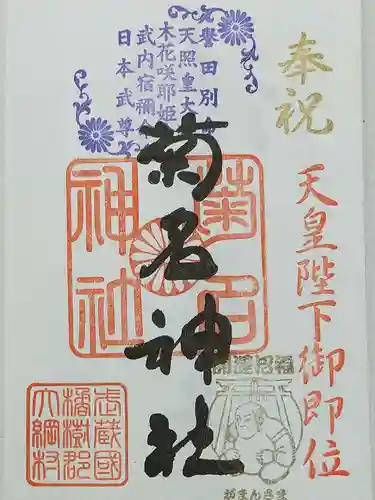 奉祝
天皇陛下御即位
誉田別
天照皇大
木花咲耶姫
武内宿禰
日本武尊
菊名神社
菊名
神社
福招運開
がまんさま
武蔵國
橘樹郡
大綱村